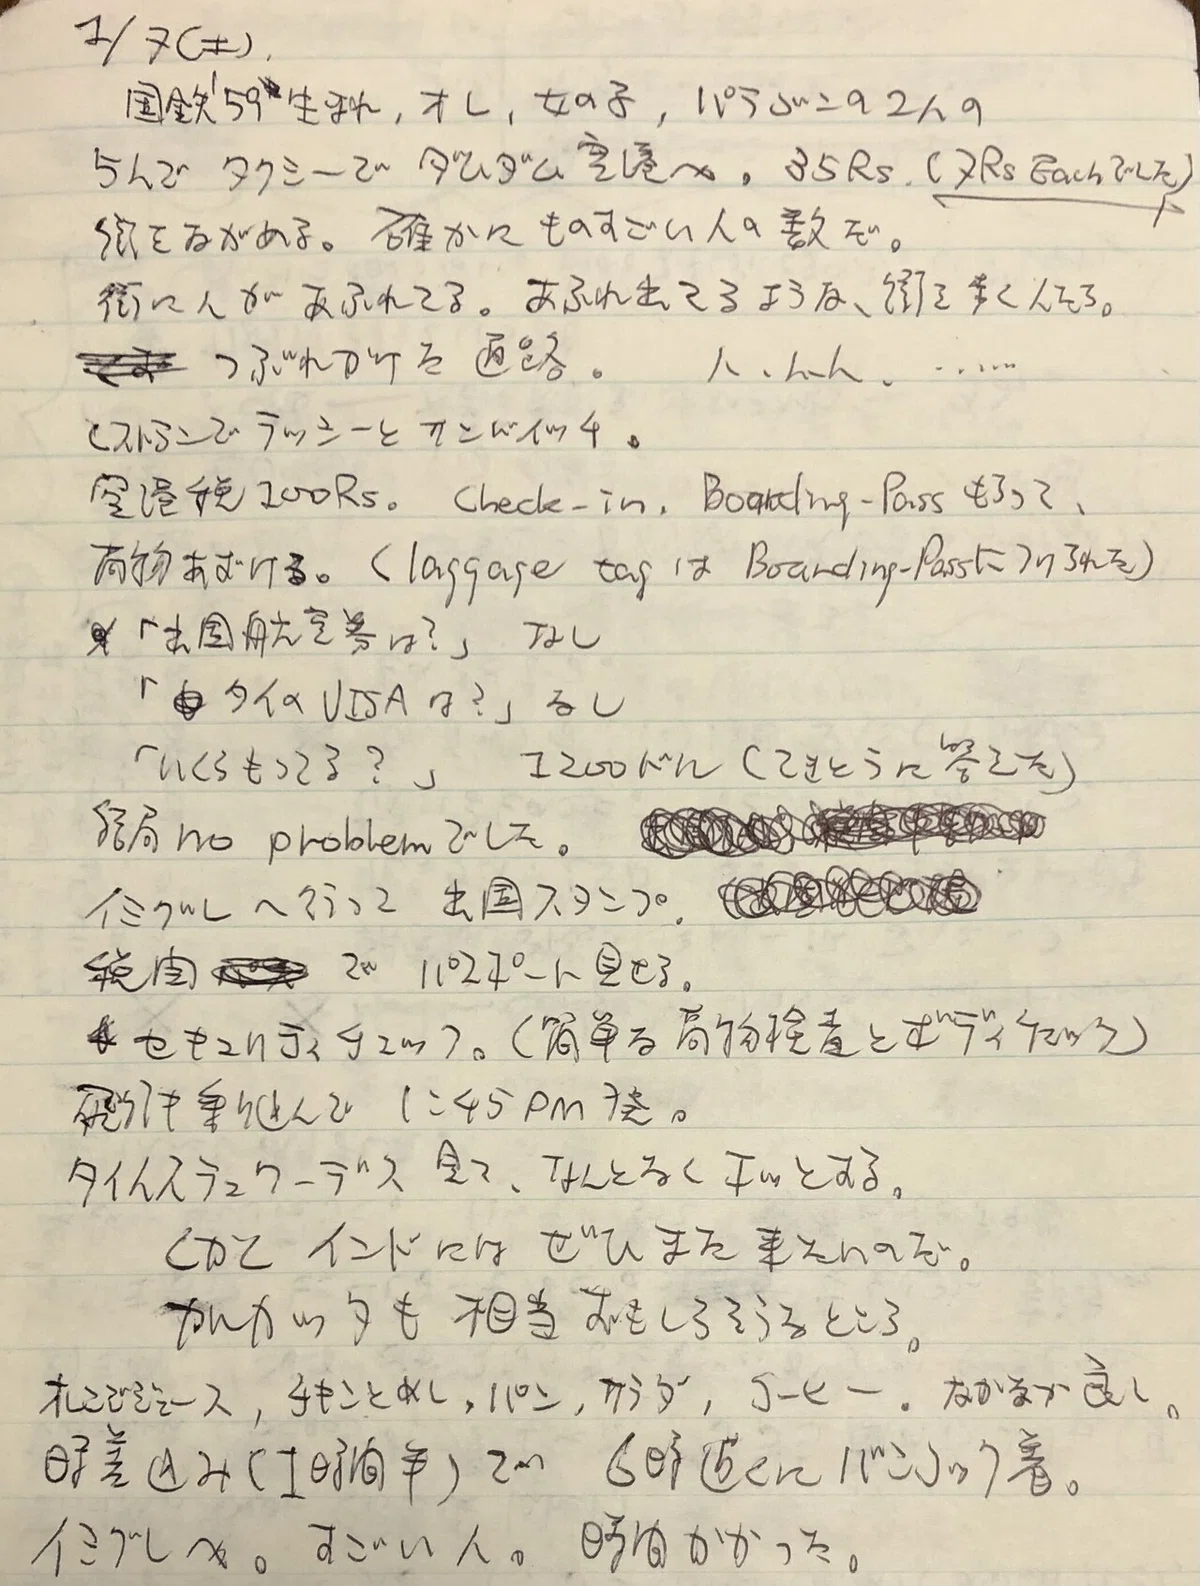 1/7(土).
国鉄'59生まれ, オレ, 女の子, パラゴンの2人の
5人で タクシーで ダムダム空港へ。 35Rs. (7Rs Eachでした)
街をながめる。 確かに ものすごい人の数だ。
街に人が あふれてる。 あふれ出てるような、街を歩く人たち。
つぶれかけた 道路。 人、人人、……
レストランで ラッシーと サンドイッチ。
空港税 100Rs. Check-in. Boarding-Pass もらって、
荷物あずける。 (laggage tag は Boarding-Passにつけられた)
「出国航空券は?」 なし
「タイの VISA は?」 なし
「いくらもってる?」 1200ドル (てきとうに答えた)
結局 no problem でした。
イミグレへ行って 出国スタンプ.
税関 で パスポート見せる。
セキュリティチェック。 (簡単な荷物検査とボディチェック)
飛行機乗り込んで 1:45 PM 発。
タイ人スチュワーデス 見て、なんとなく ホッとする。
しかし インドには ぜひ また 来たいのだ。
カルカッタも 相当 おもしろそうなところ。
オレンジジュース, チキンとめし, パン, サラダ, コーヒー. なかなか良し。
時差込み (1時間半) で 6時近くに バンコック着。
イミグレへ。 すごい人。 時間かかった。